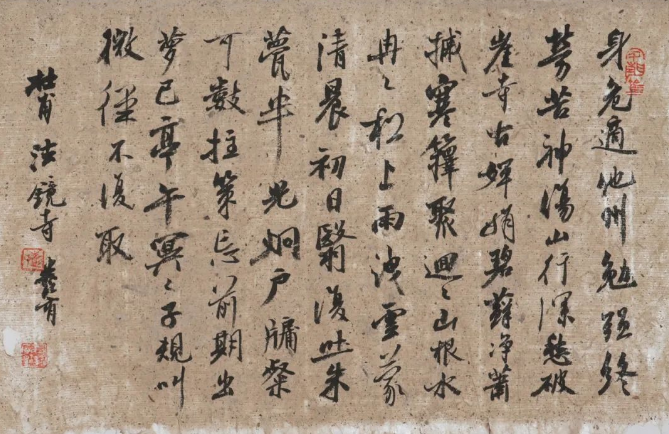 身危適他州勉强終
勞苦神傷山行深愁破
崖寺古嬋娟碧蘚净蕭
摵寒籜聚迴〻山根水
冉〻松上雨洩雲蒙
清晨初日翳復吐朱
甍半光炯户牖粲
可數拄策忘前期出
萝已亭午冥〻子規叫
微徑不復取
杜甫 法鏡寺